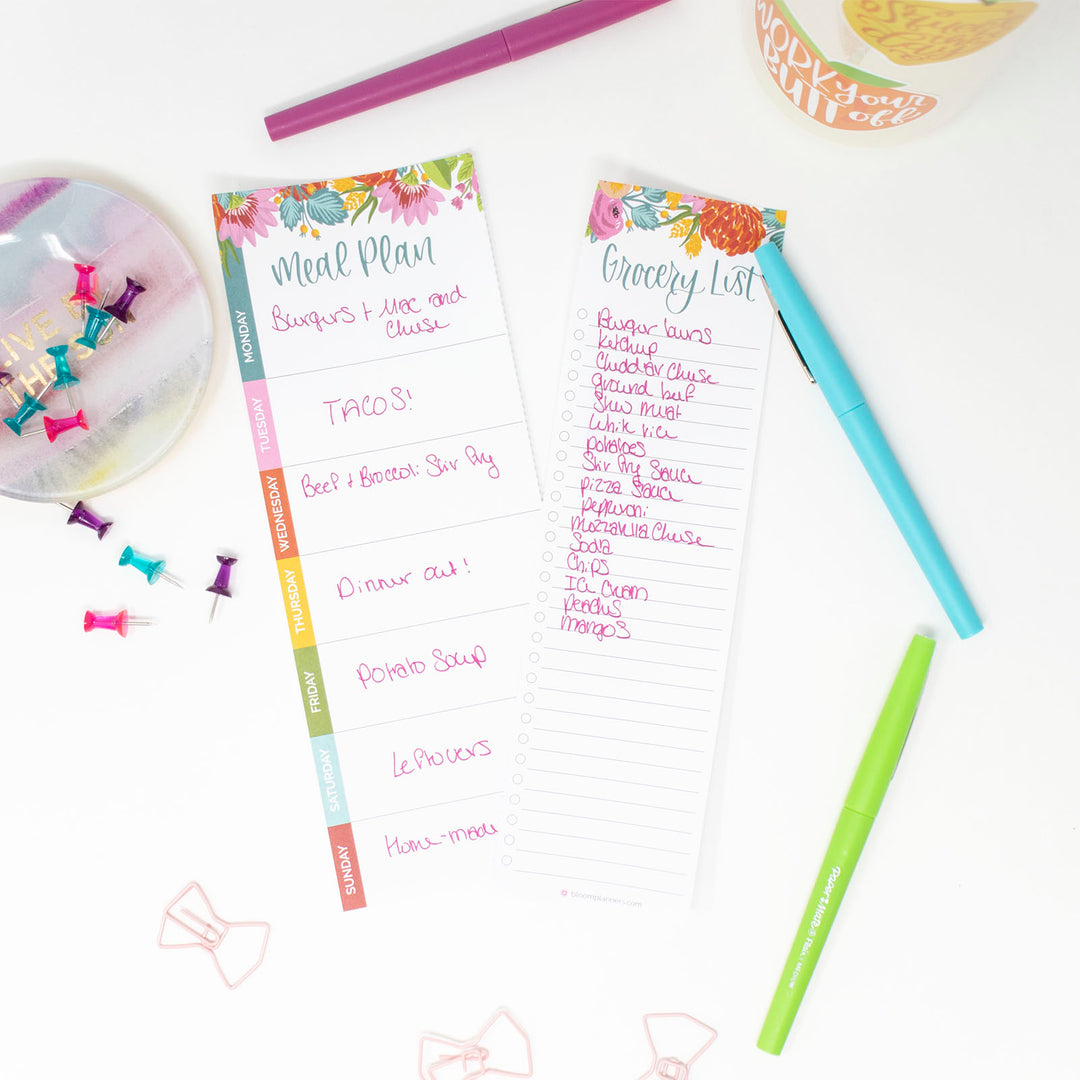 WORK your
BUTT off
Meal Plan
MONDAY
Burgers + Mac and
Cheese
TUESDAY
TACOS!
WEDNESDAY
Beef + Broccoli Stir Fry
THURSDAY
Dinner out!
FRIDAY
Potato Soup
SATURDAY
Leftovers
SUNDAY
Home-made
Grocery List
Burger buns
Ketchup
Cheddar Cheese
Ground beef
Stew meat
White rice
Potatoes
Stir Fry Sauce
Pizza Sauce
Pepperoni
Mozzarella Cheese
Soda
Chips
Ice Cream
Peaches
Mangos
bloomplanners.com
Paper Mate Flair MEDIUM